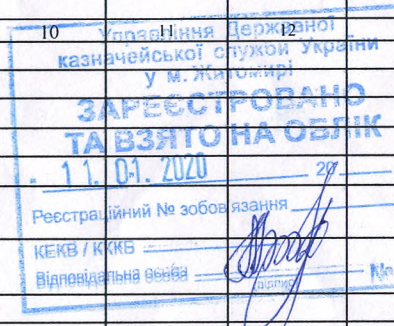 10 11 12
Управління Державної
казначейської служби України
у м. Житомирі
ЗАРЕЄСТРОВАНО
ТА ВЗЯТО НА ОБЛІК
- 11. 01. 2020 20
Реєстраційний № зобов'язання
КЕКВ / ККБ
Відповідальна особа №
(підпис)